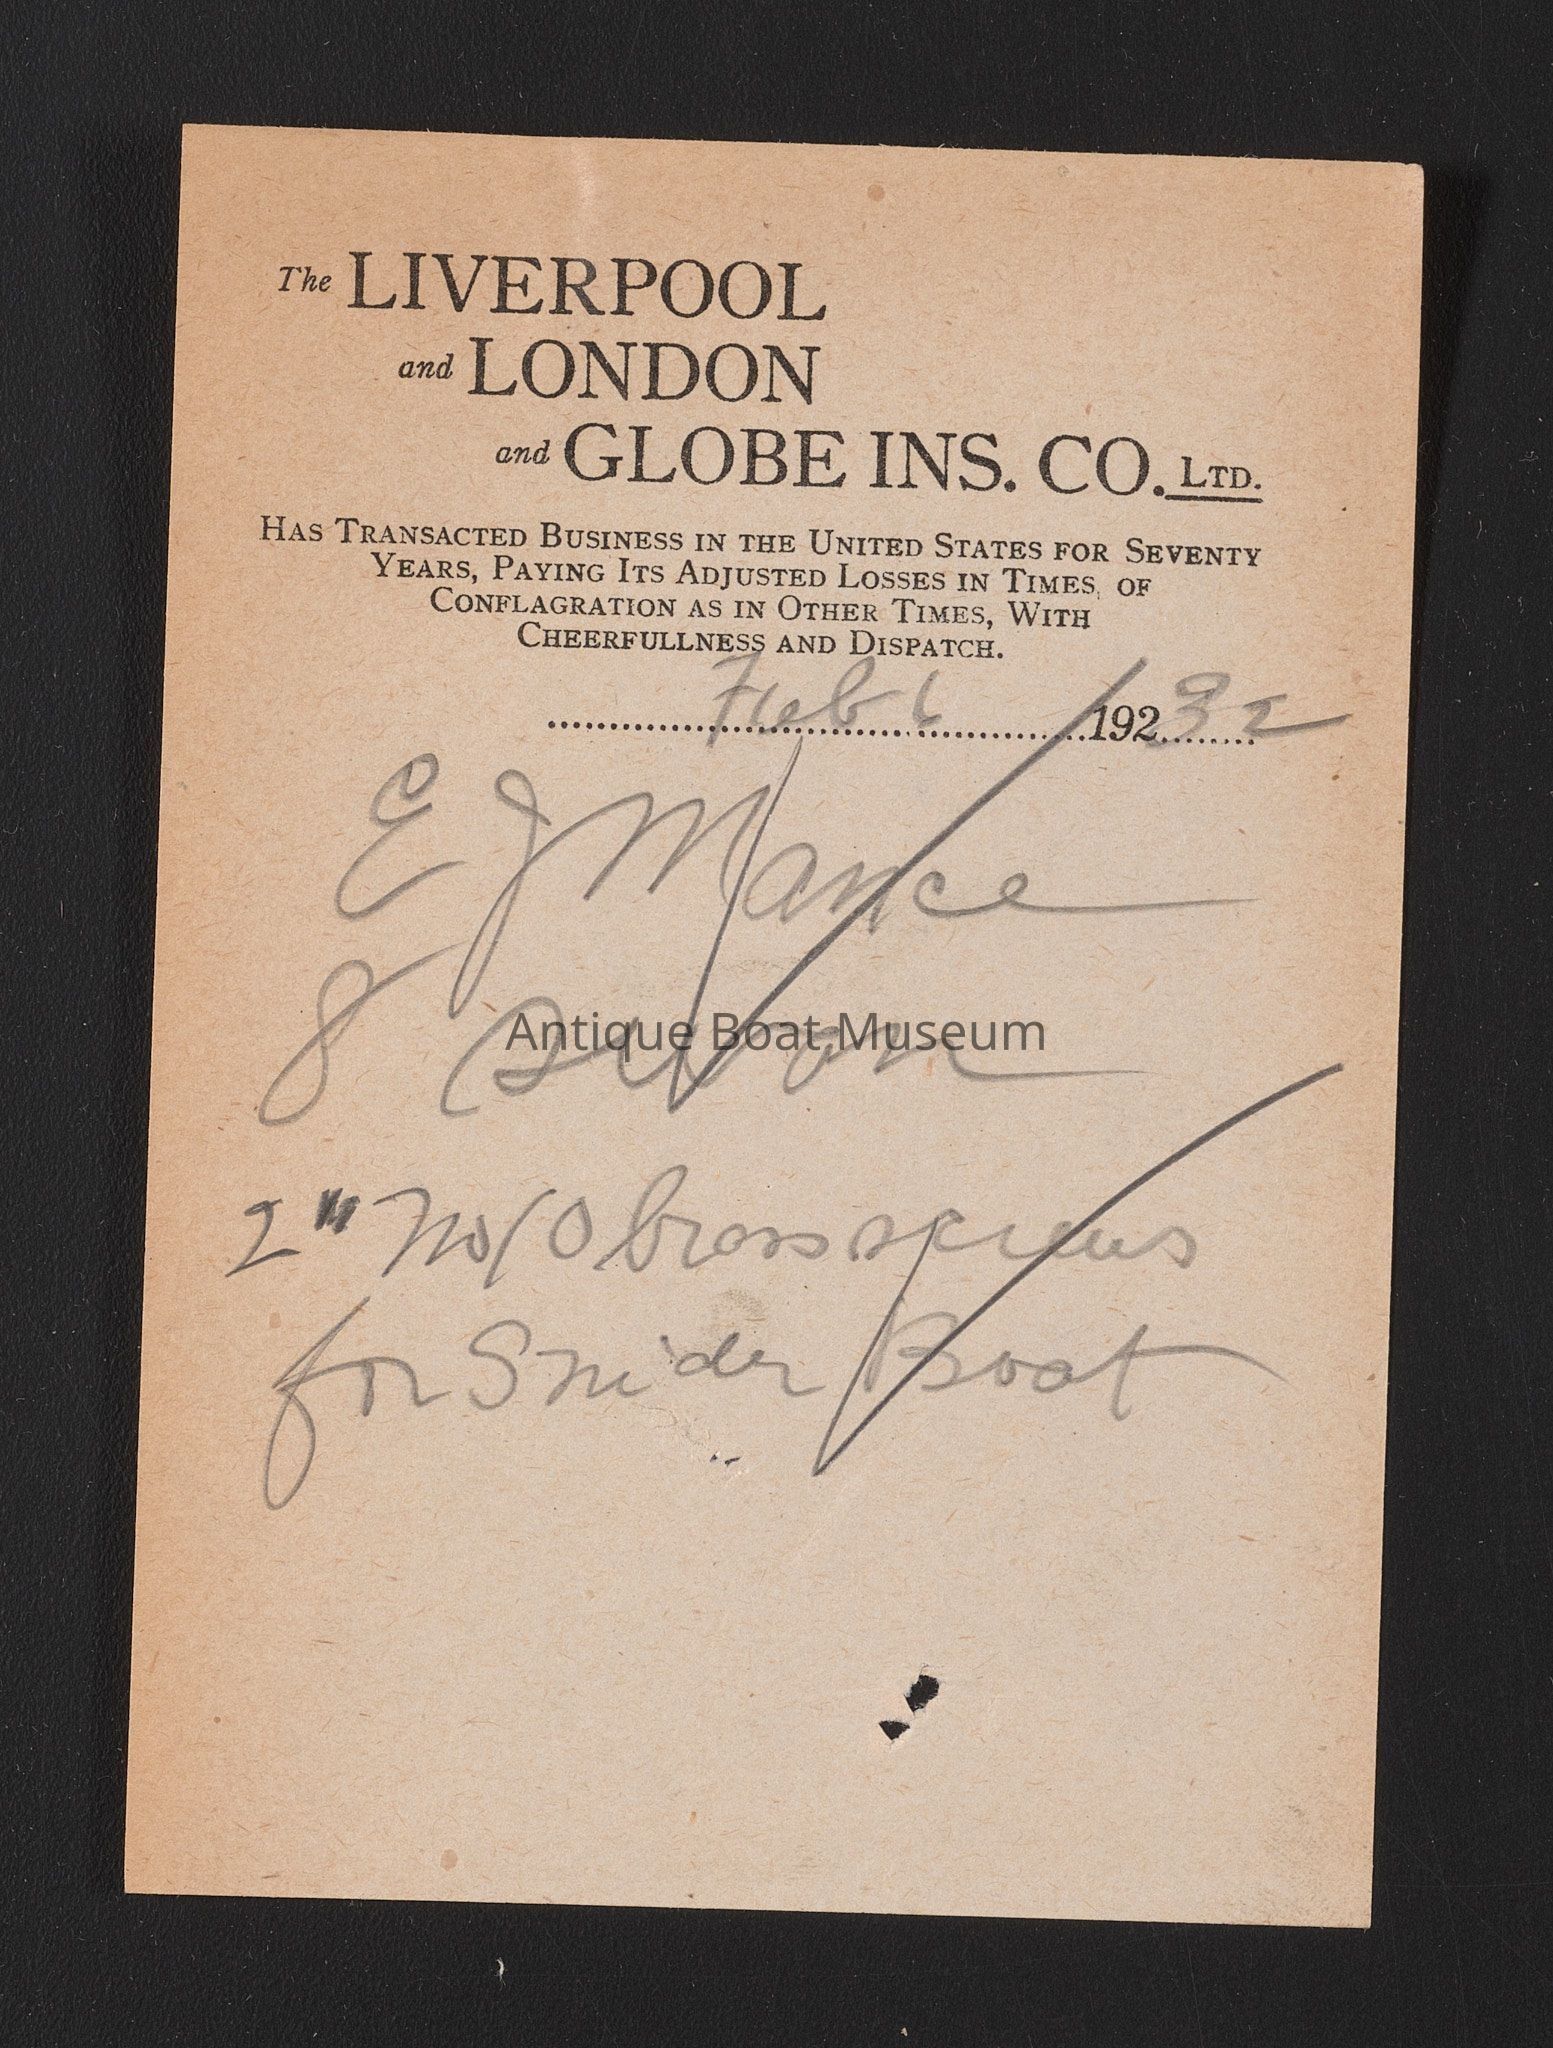 The LIVERPOOL
and LONDON
and GLOBE INS. CO. LTD.
HAS TRANSACTED BUSINESS IN THE UNITED STATES FOR SEVENTY
YEARS, PAYING ITS ADJUSTED LOSSES IN TIMES OF
CONFLAGRATION AS IN OTHER TIMES, WITH
CHEERFULLNESS AND DISPATCH.
Feb 6 192 32
E J Mance
8
Antique Boat Museum
2" No 10 brass screws
for Snider Boat